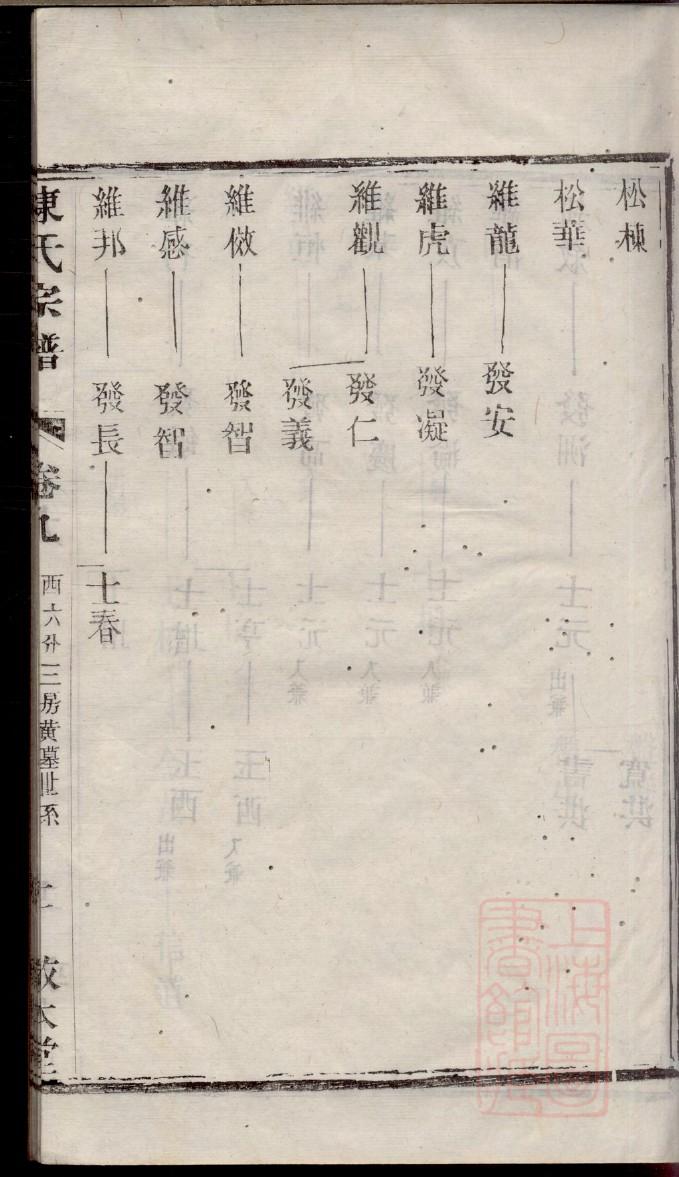 松棟
松華
維龍 發安
維虎 發凝
維觀 發仁
發義
維傚 發智
維感 發智
維邦 發長 士春
陳氏宗譜 卷九 西六分三房黃墓世系 敬本堂
上海圖書館藏